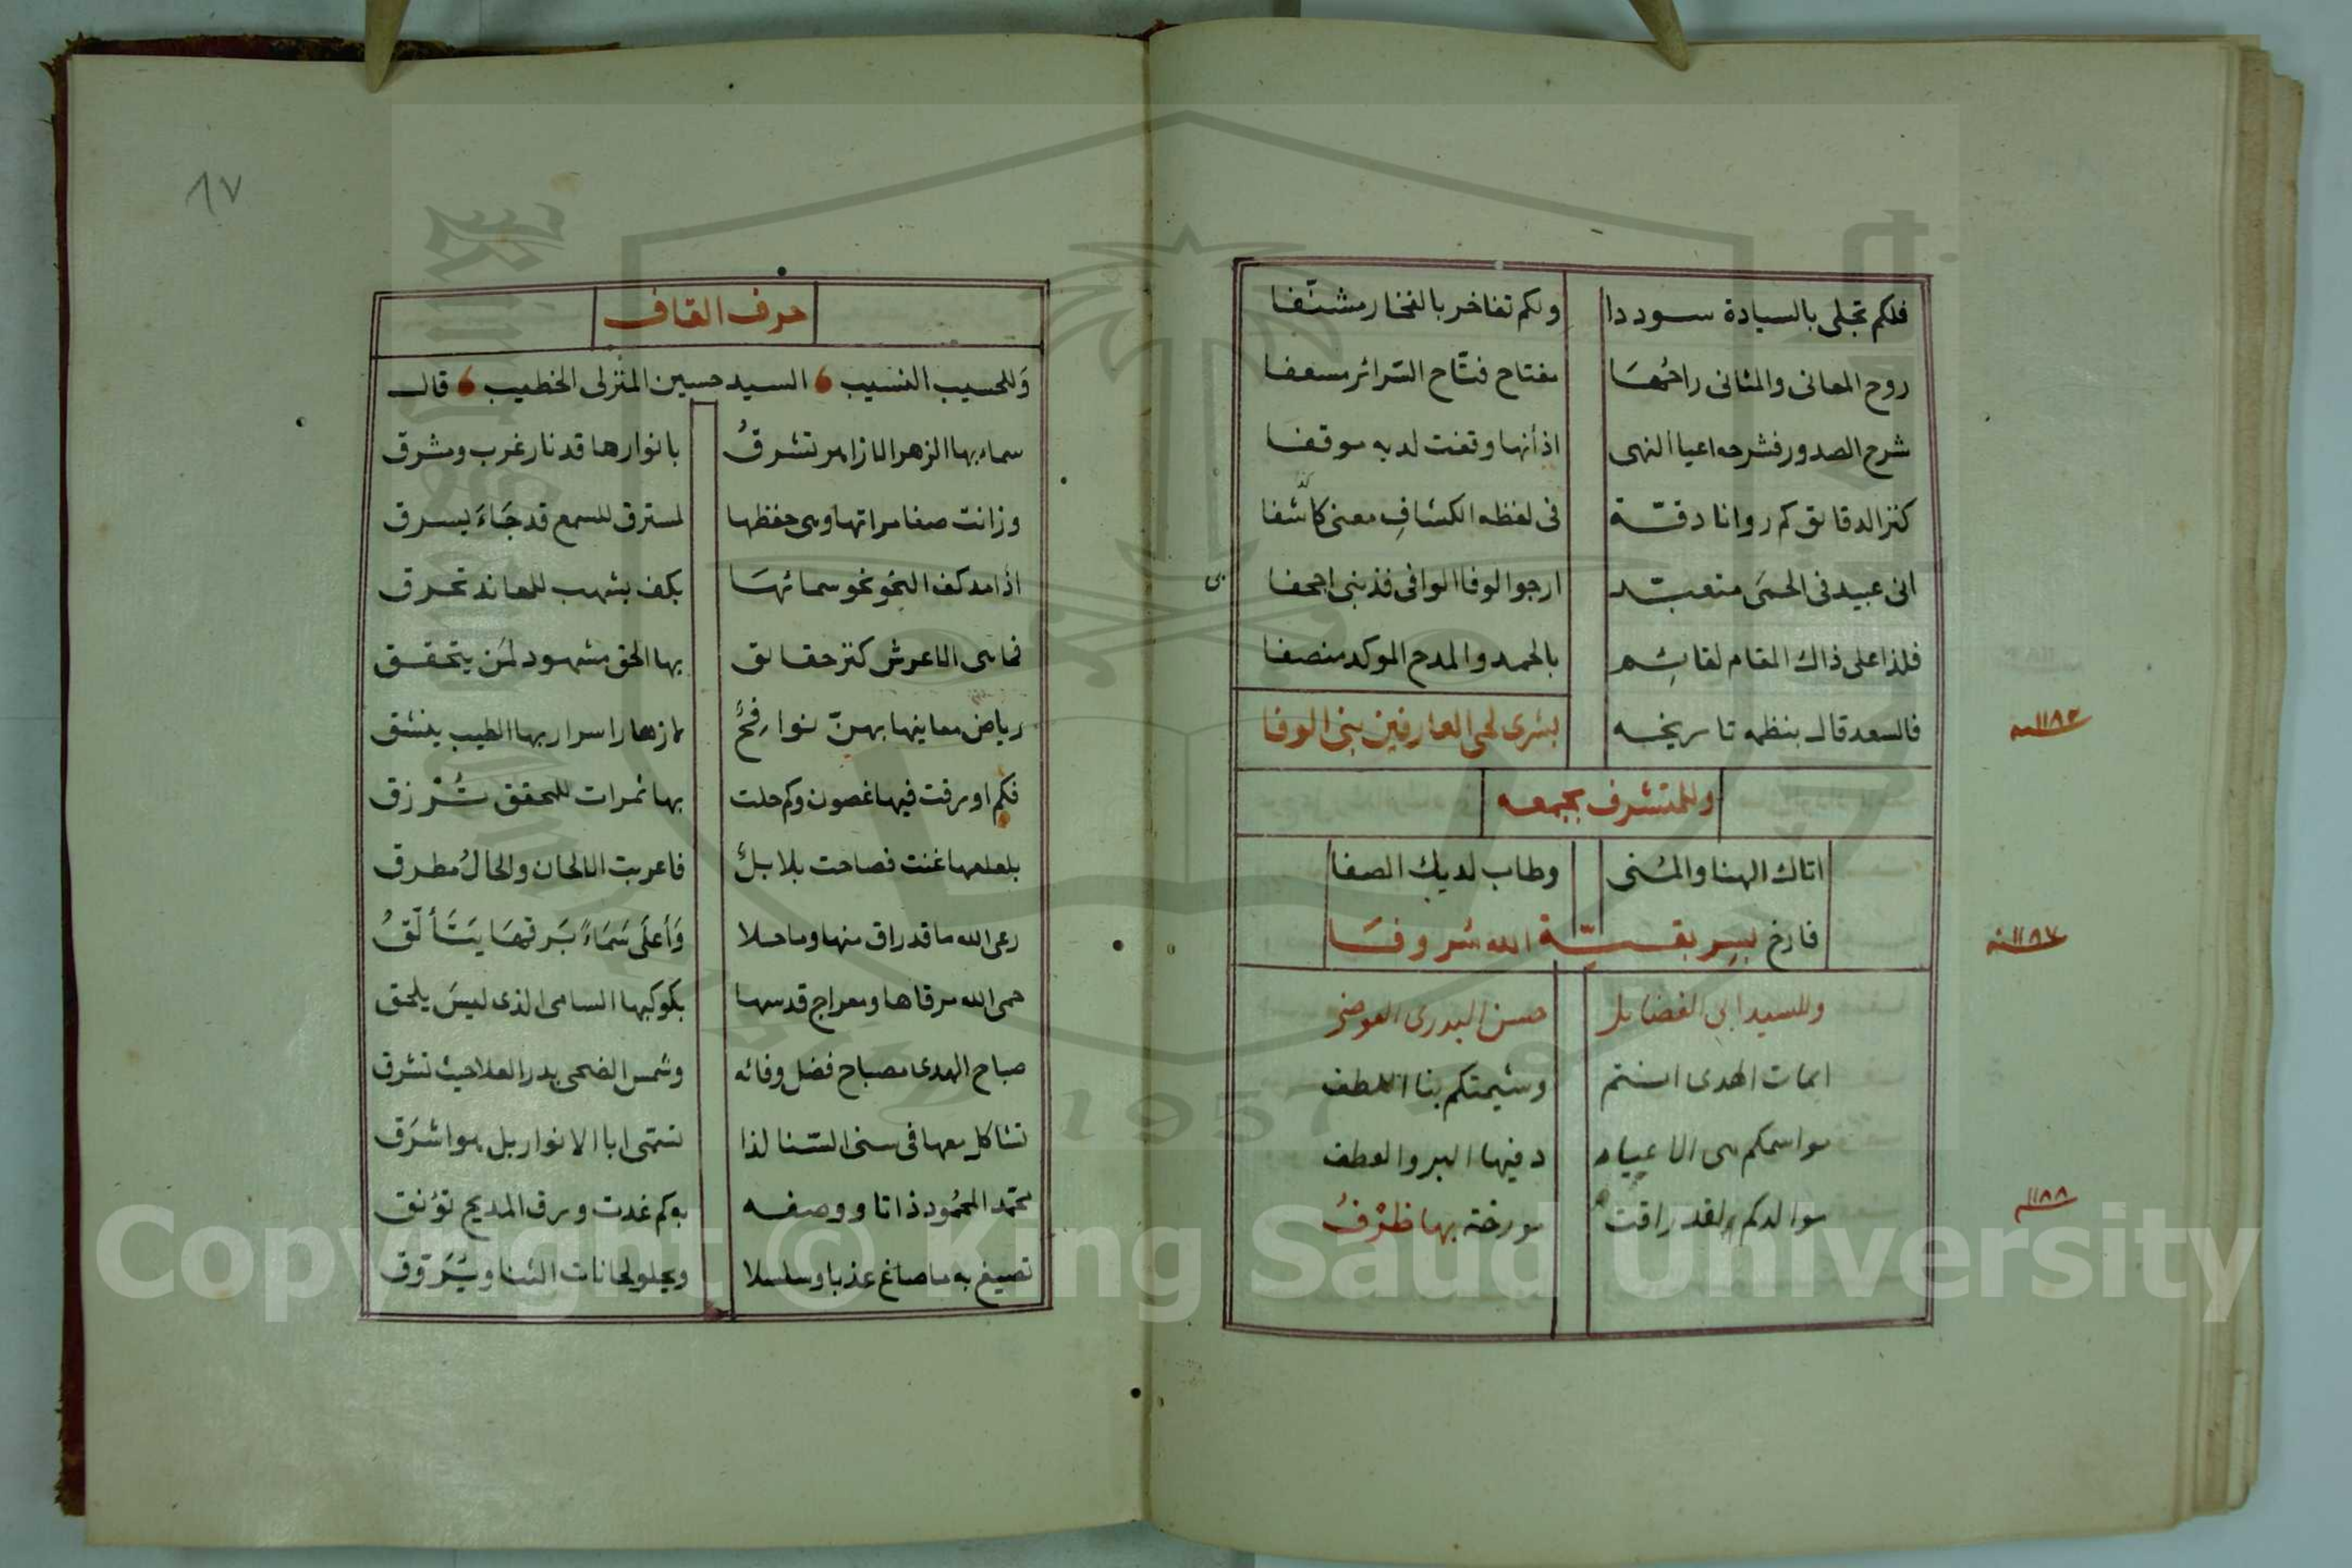 فلكم تجلى بالسيادة سوددا ولكم تفاخر بالفخار مشنّفا
روح المعانى والمثانى راحُهَا مفتاح فتّاح السّرائر مسعفا
شرح الصدور فشرحه اعيا النهى اذ أنها وقفت لديه موقفا
كنز الدقايق كم روانا دقّة فى لفظه الكشافِ معنى كاشّفا
انى عبيد فى الحمَى متعبّد ارجوا لوفا الوافى فذنبى اجحفا
فلذا على ذاك المقام لقائِم بالحمد والمدح الموكد منصفا
فالسعد قال بنظمه تاريخه بشرى لحى العارفين بنى الوفا
١١٨٢سنه
وللمتشرف بجمعه
اتاك الهنا والمُنى وطاب لديك الصفا
فارخ بسِر بقيّة الله شروفَا
١١٨٧سنه
وللسيد ابى الفضايل حسن البدرى العوضى
ايمات الهدى انتم وشيمتكم بنا اللطف
مواسمكم هى الاعياد دفيها البر والعطف
موالدكم لقد راقت مورخة بها ظرْفُ
١١٨٨
٨٧
حرف القاف
وَللحسيب النسيب السيد حسين المنزلى الخطيب قال
سماء بها الزهر الازاهر تشرقُ بانوارها قد نار غرب ومشرق
وزانت صفا مراتها وهى حفظها لمسترق للسمع قد جَاءَ يسرق
اذا مد كف النحو نحو سمائهَا بكف بشهب للمعاند تحرق
فما هى الا عرش كنز حقايق بها الحق مشهود لمَن يتحقق
رياض معاينها بهنّ نوافِحٌ لازهار اسرار بها الطيب ينشق
فكم اورقت فيها غصون وكم حلت بها ثمرات للمحقق تُرْزق
بلعلعها غنت فصاحت بلابلٌ فاعربت الالحان والحالُ مطرق
رعى الله ما قد راق منها وما حلا وَأعلَى سَمَاءً بَرقهَا يَتَألّقُ
حمى الله مرقاها ومعراج قدسها بكوكبها السامى الذى ليسَ يلحق
صباح الهدى مصباح فضل وفائه وشمس الضحى بدر العلا حيث تشرق
تشاكل معها فى سنى السّنا لذا تسمى ابا الانوار بل هو اشرَق
محمّد المحمُود ذاتا ووصفه به كم غدت ورق المديح تؤنق
تصيغ به ما صاغ عذبا وسلسلا ويجلو لحانات الثنا ويُرَوّق
Copyright © King Saud University
1957